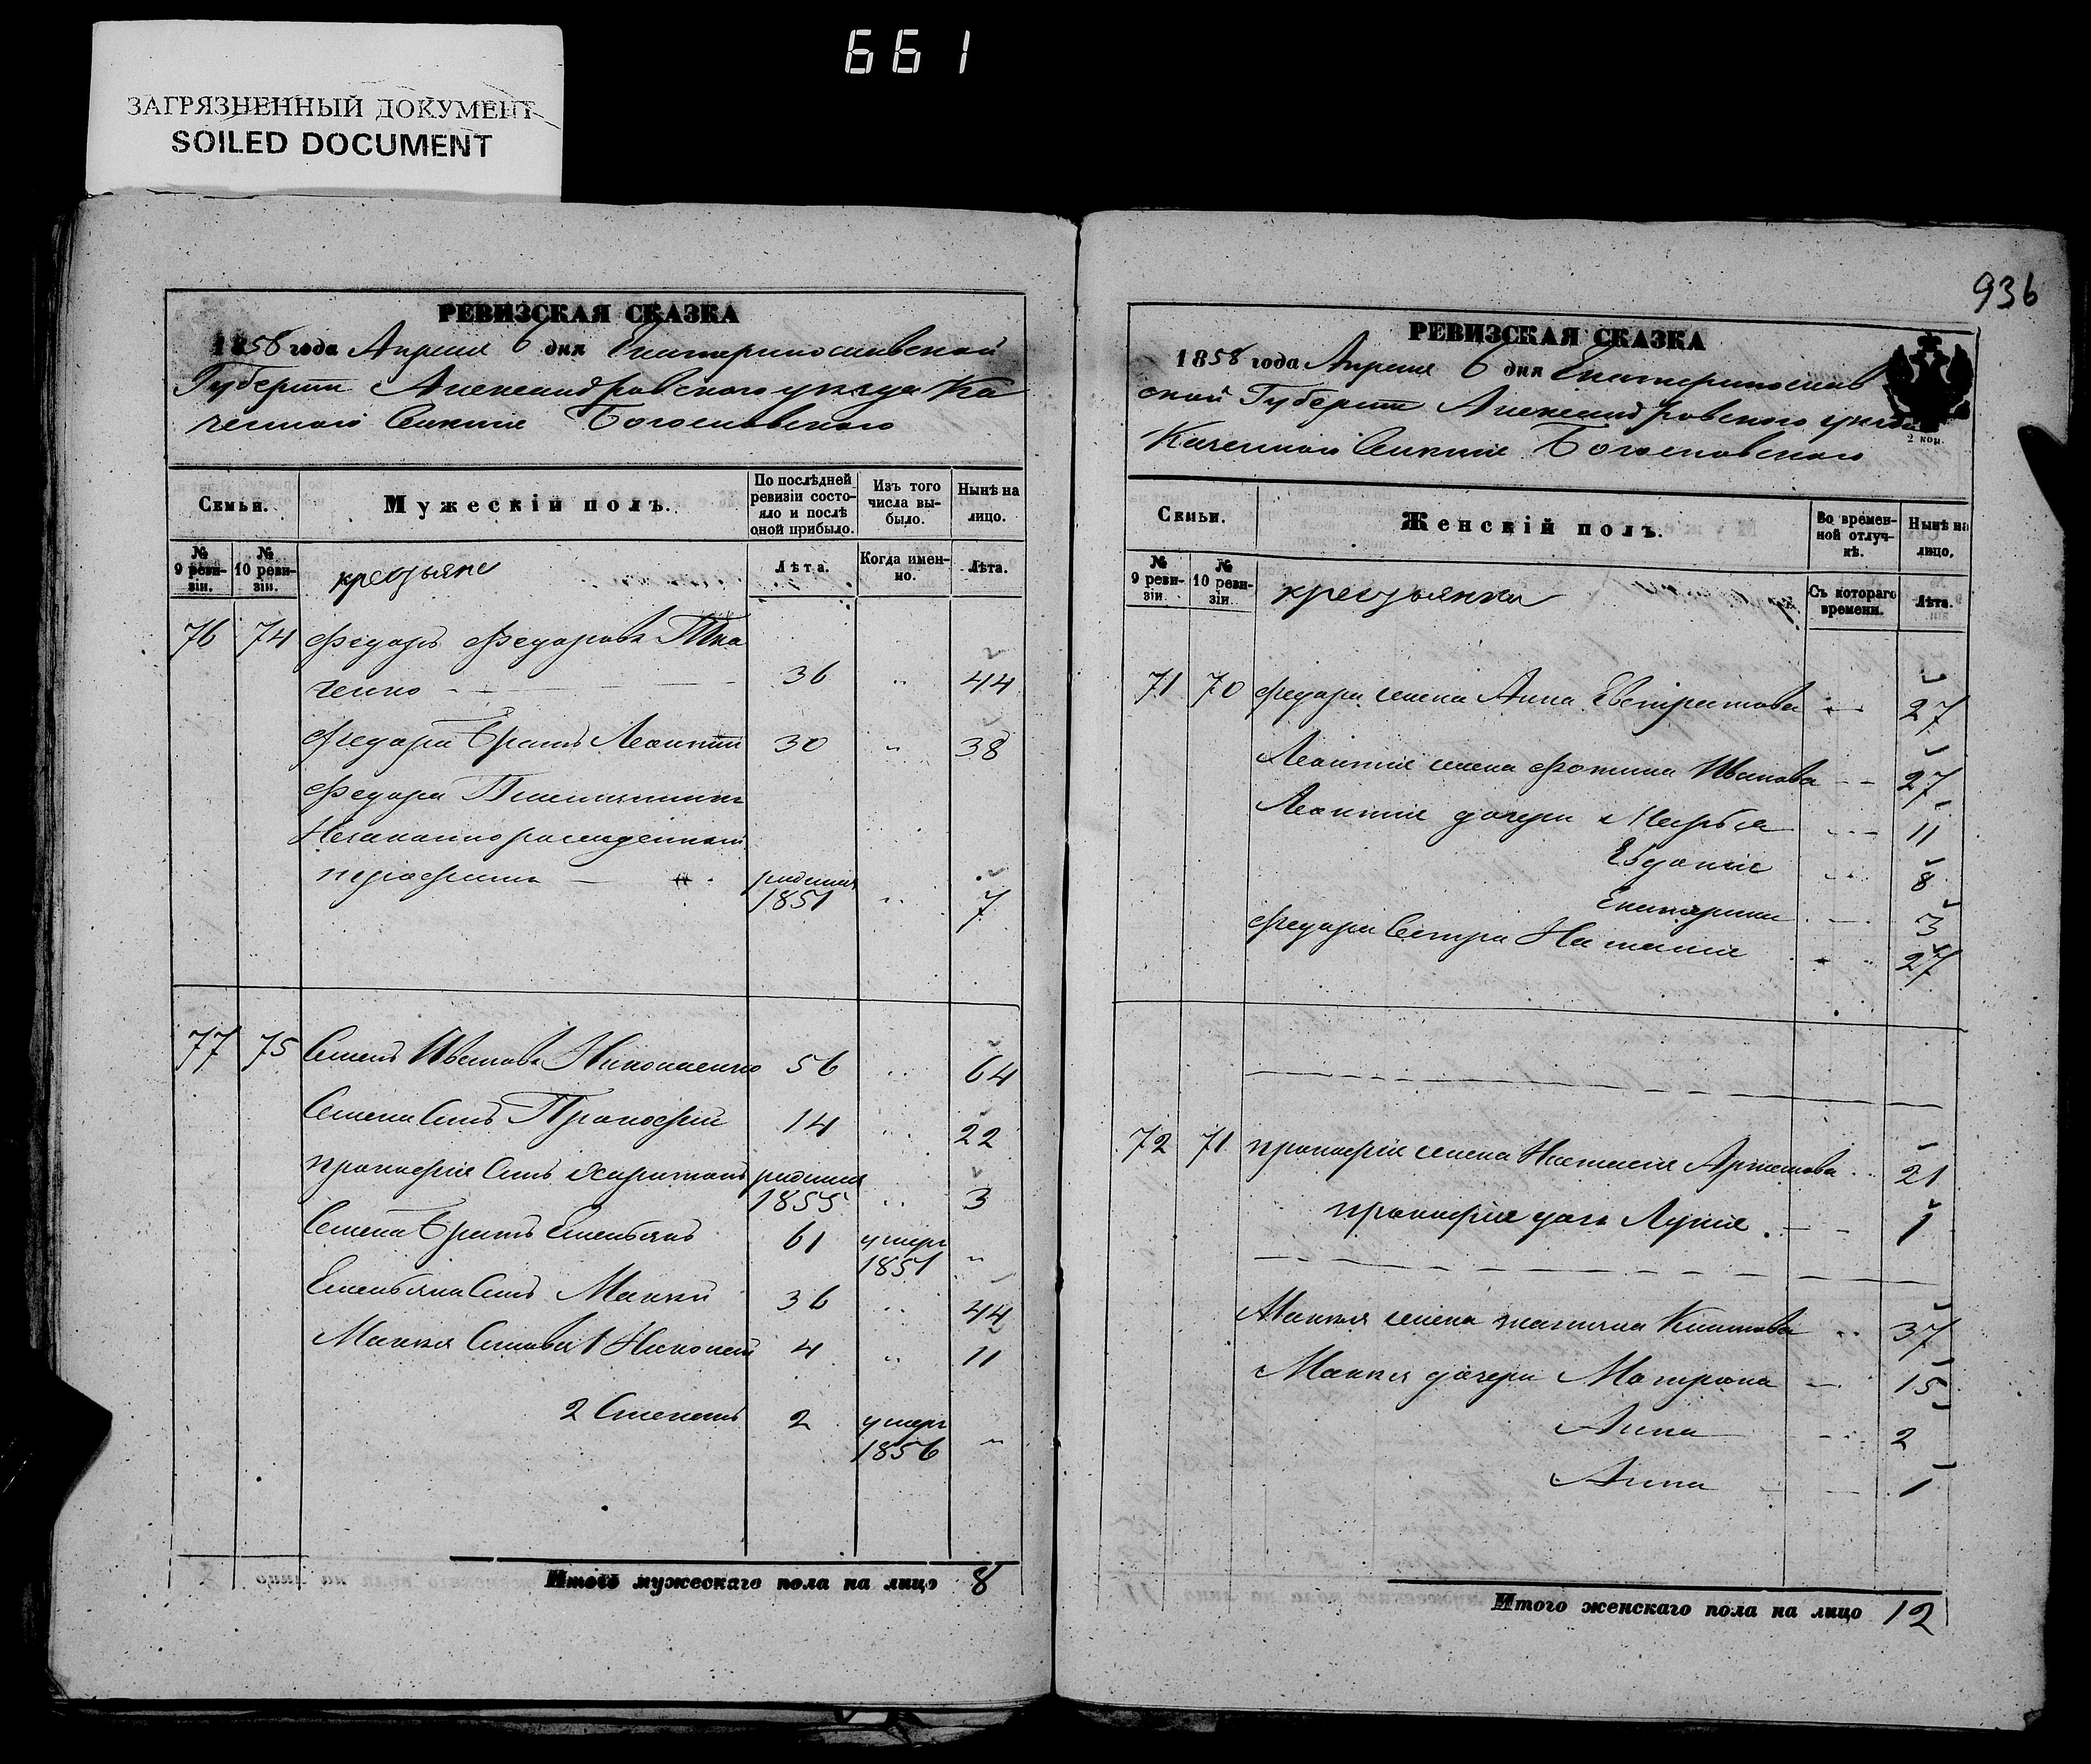 661
ЗАГРЯЗНЕННЫЙ ДОКУМЕНТ
SOILED DOCUMENT
РЕВИЗСКАЯ СКАЗКА
1858 года Апреля 6 дня Екатеринославской
Губернии Александровского уезда Ка
Богословского
Семьи.
Мужескій полъ.
По послѣдней ревизіи состояло и послѣ оной прибыло.
Изъ того числа выбыло.
Нынѣ на лицо.
№ 9 ревизіи.
№ 10 ревизіи.
крестьяне
Лѣта.
Когда именно.
Лѣта.
76 74 Федоръ Федоровъ Тка
ченко 36 " 44
Федора братъ Леонтій 30 " 38
Федора Племянникъ
Незаконнорожденный
родился
1851 " 7
77 75 Семенъ Ивановъ Николаенко 56 " 64
Семена сынъ Прокофій 14 " 22
Прокофія сынъ Харитонъ родился
1855 " 3
Семена братъ Емельянъ 61 умеръ
1851 "
Емельяна сынъ 36 " 44
сыновья 1 Николай 4 " 11
2 Степанъ 2 умеръ
1856 "
Итого мужескаго пола на лицо 8
936
РЕВИЗСКАЯ СКАЗКА
1858 года Апреля 6 дня Екатеринослав
ской Губернии Александровского уезда
2 коп.
Богословского
Семьи.
Женскій полъ.
Во временной отлучкѣ.
Нынѣ на лицо.
№ 9 ревизіи.
№ 10 ревизіи.
крестьянки
Съ котораго времени.
Лѣта.
71 70 Федора жена Анна Евстратова 27
Леонтія жена Фотина Иванова 27
Леонтія дочери Марфа 11
Евдокія 8
Екатерина 3
Федора сестра Наталія 27
72 71 Прокофія жена Настасія 21
Прокофія дочь 1
жена Татьяна 37
дочери Матрона 15
Анна 2
Анна 1
Итого женскаго пола на лицо 12